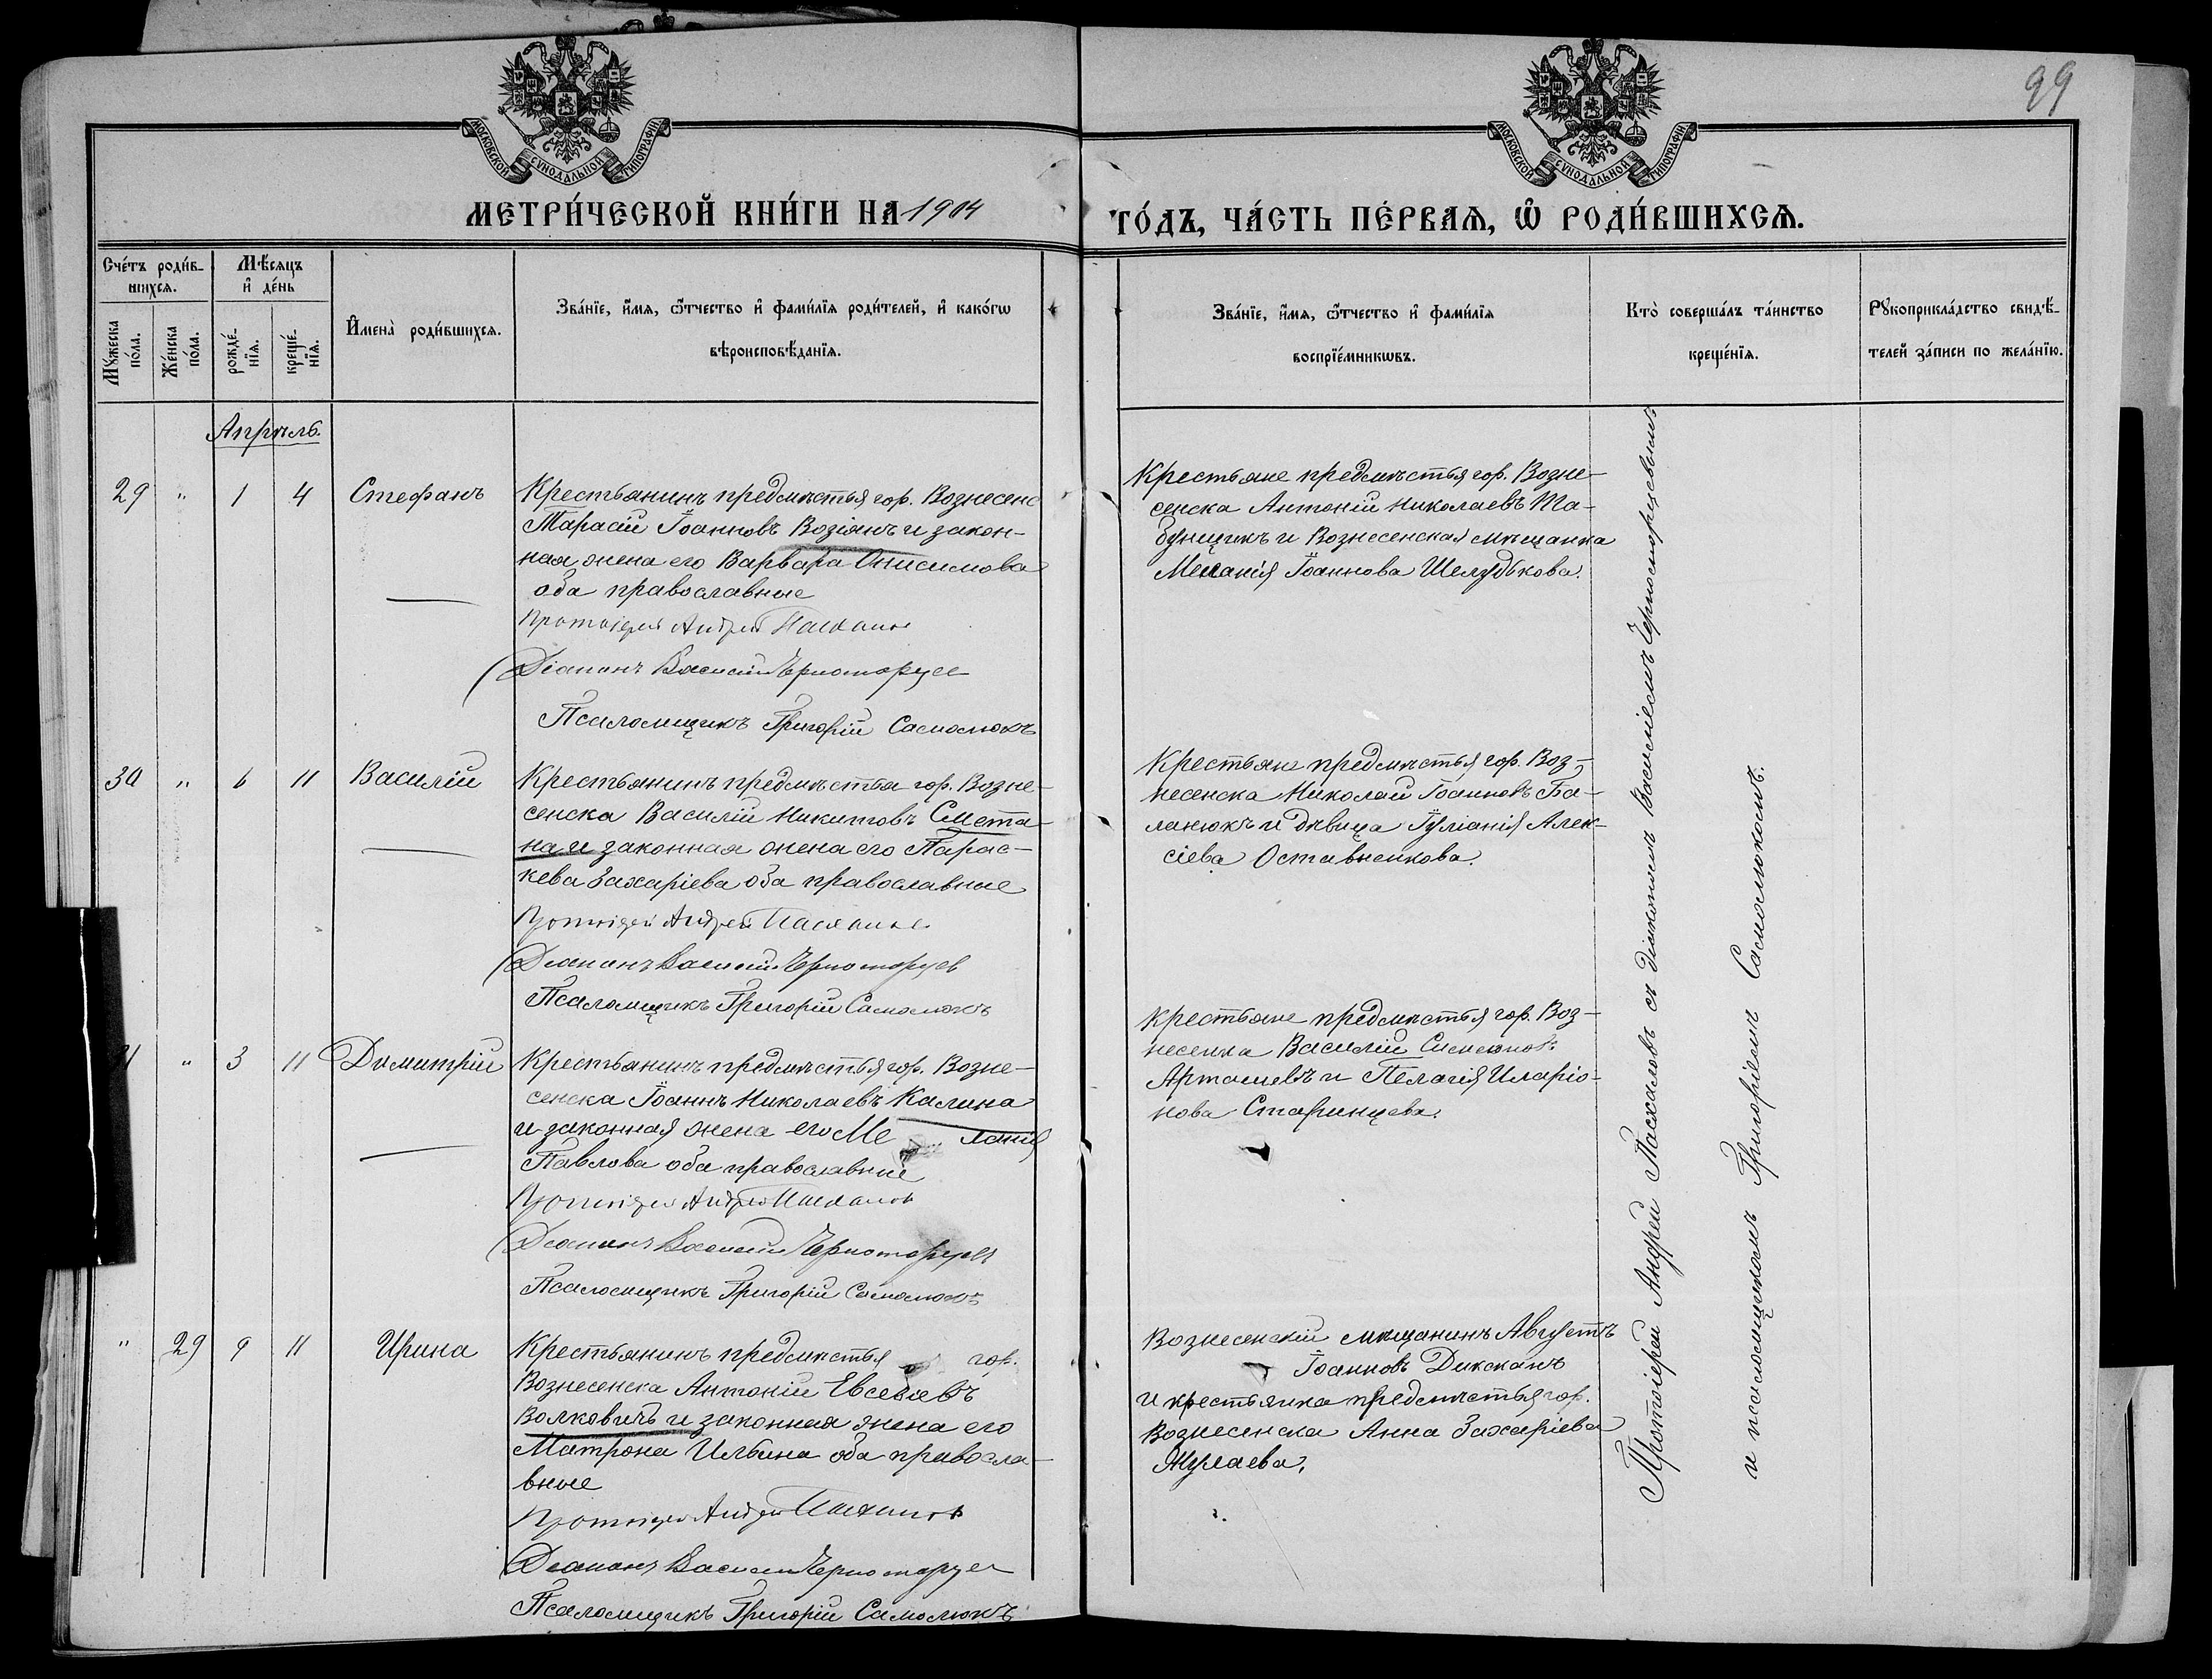 99
МОСКОВСКОЙ СѴНОДАЛЬНОЙ ТИПОГРАФІИ
МОСКОВСКОЙ СѴНОДАЛЬНОЙ ТИПОГРАФІИ
МЕТРИ́ЧЕСКОЙ КНИ́ГИ НА 1904
ГО́ДЪ, ЧА́СТЬ ПЕ́РВАѦ, Ѡ҆ РОДИ́ВШИХСѦ.
Сче́тъ роди́в-
шихсѧ.
Мꙋ́жеска по́ла.
Же́нска по́ла.
Мѣ́сяцъ
и҆ де́нь
рожде́-
нїѧ.
креще́-
нїѧ.
И҆мена̀ роди́вшихсѧ.
Зва́нїе, и҆́мѧ, ѻ҆́тчество и҆ фами́лїѧ роди́телей, и҆ како́гѡ
вѣроисповѣ́данїѧ.
Зва́нїе, и҆́мѧ, ѻ҆́тчество и҆ фами́лїѧ
воспрїе́мникѡвъ.
Кто̀ соверша́лъ та́инство
креще́нїѧ.
Рꙋкоприкла́дство свидѣ́-
телей за́писи по жела́нїю.
Апрѣль.
29 " 1 4 Стефанъ
Крестьянинъ предмѣстья гор. Вознесенс
Тарасій Іоанновъ Возіянъ и закон-
ная жена его Варвара Онисимова
оба православные
Протоіерей Андрей Пасхалов
Діаконъ Василій Черноморцев
Псаломщикъ Григорій Самолюкъ
Крестьяне предмѣстья гор. Возне-
сенска Антоній Николаевъ Та-
бунщикъ и Вознесенская мѣщанка
Меланія Іоаннова Шелудькова.
30 " 6 11 Василій
Крестьянинъ предмѣстья гор. Возне-
сенска Василій Никитовъ Смета-
на и законная жена его Парас-
кева Захаріева оба православные
Протоіерей Андрей Пасхалов
Діаконъ Василій Черноморцев
Псаломщикъ Григорій Самолюкъ
Крестьяне предмѣстья гор. Воз-
несенска Николай Іоанновъ Ба-
ланюкъ и дѣвица Іуліанія Алек-
сіева Оставненкова.
31 " 3 11 Димитрій
Крестьянинъ предмѣстья гор. Возне-
сенска Іоаннъ Николаевъ Калина
и законная жена его Ме ланія
Павлова оба православные
Протоіерей Андрей Пасхалов
Діаконъ Василій Черноморцев
Псаломщикъ Григорій Самолюкъ
Крестьяне предмѣстья гор. Воз-
несенска Василій Симеоновъ
Артемевъ и Пелагія Иларіо-
нова Старинцева.
" 29 9 11 Ирина
Крестьянинъ предмѣстья гор.
Вознесенска Антоній Евсевіевъ
Волковичъ и законная жена его
Матрона Ильина оба правосла-
вные
Протоіерей Андрей Пасхалов
Діаконъ Василій Черноморцев
Псаломщикъ Григорій Самолюкъ
Вознесенскій мѣщанинъ Августъ
Іоанновъ Диксканъ
и крестьянка предмѣстья гор.
Вознесенска Анна Захаріева
Жулаева.
Протоіерей Андрей Пасхаловъ съ діакономъ Василіемъ Черноморцевымъ
и псаломщикомъ Григоріемъ Самолюкомъ.